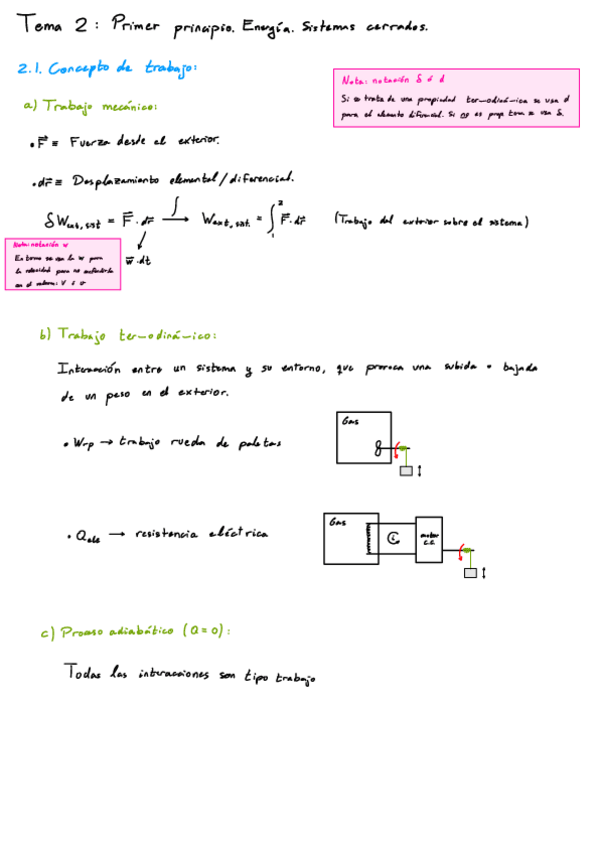 Tema 2: Primer principio. Energía. Sistemas cerrados.
2.1. Concepto de trabajo:
Nota: notación δ ó d
Si se trata de una propiedad termodinámica se usa d
para el elemento diferencial. Si no es prop. term se usa δ.
a) Trabajo mecánico:
• F⃗ ≡ Fuerza desde el exterior.
• dr⃗ ≡ Desplazamiento elemental / diferencial.
δW ext,sist = F⃗ · dr⃗ ∫→ W ext,sist = ∫₁² F⃗ · dr⃗ (Trabajo del exterior sobre el sistema)
w⃗ · dt
Nota: notación w
En termo se usa la w para
la velocidad para no confundirla
con el volumen: V ó v
b) Trabajo termodinámico:
Interacción entre un sistema y su entorno, que provoca una subida o bajada
de un peso en el exterior.
• Wrp → trabajo rueda de paletas
Gas
• Qele → resistencia eléctrica
Gas
i
motor
c.c.
c) Proceso adiabático (Q=0):
Todas las interacciones son tipo trabajo